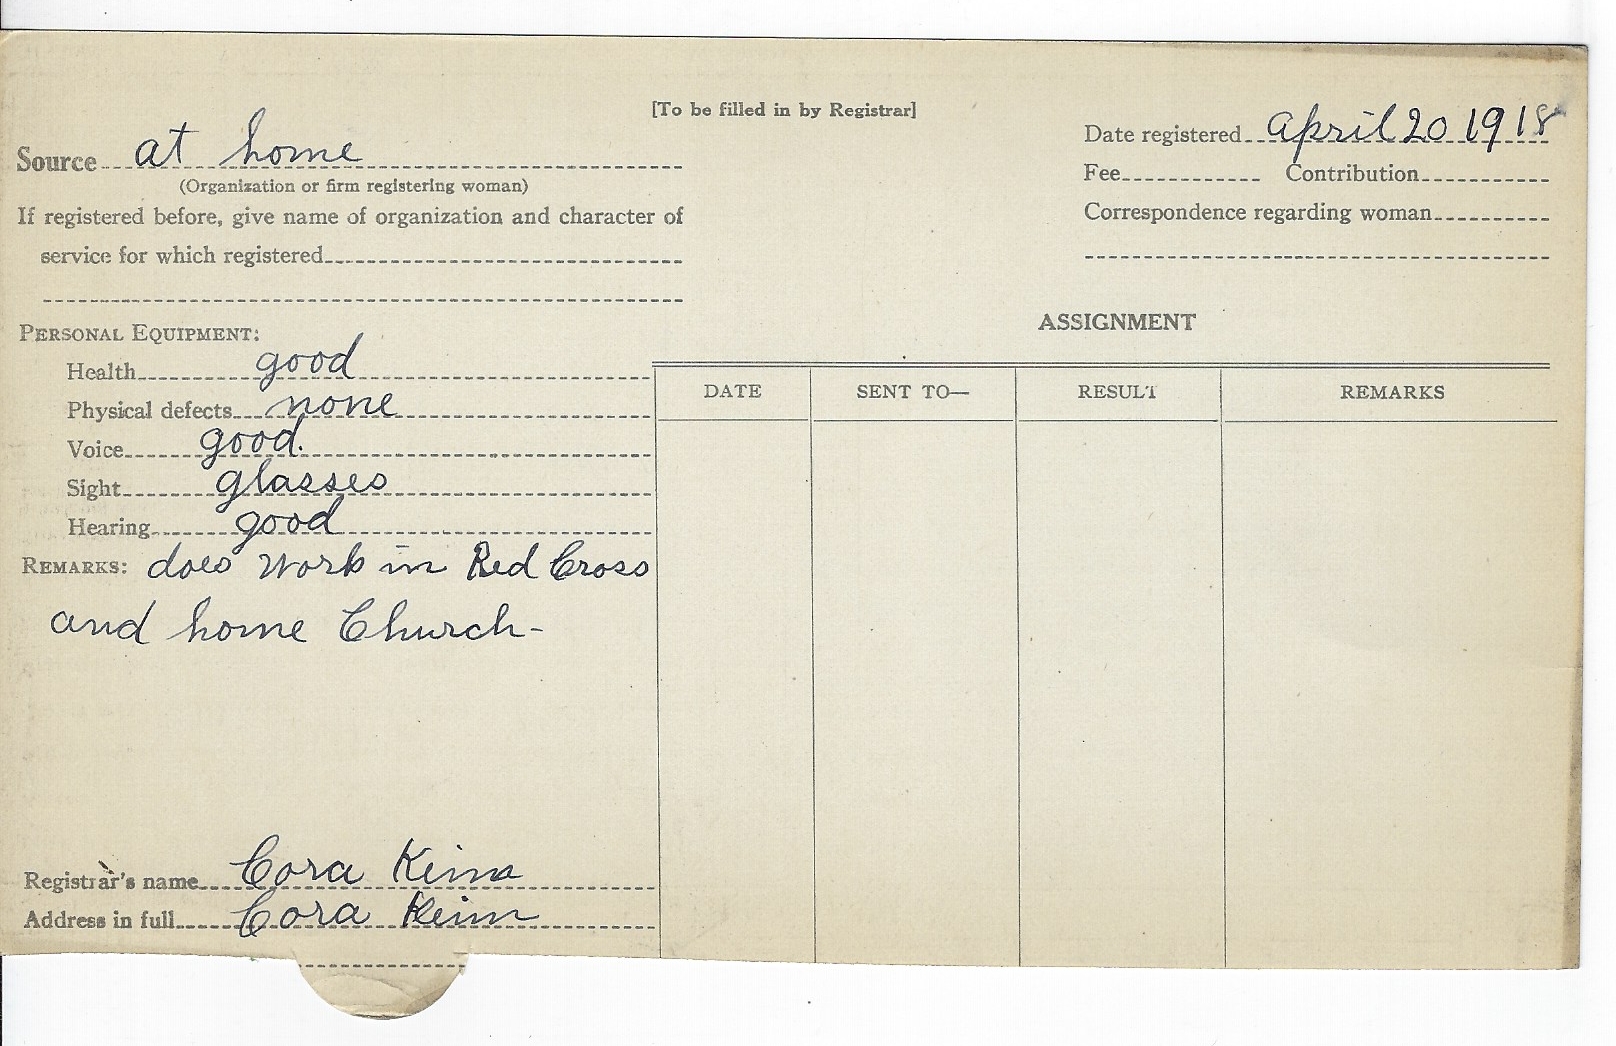 [To be filled in by Registrar]
Source at home
(Organization or firm registering woman)
If registered before, give name of organization and character of
service for which registered
Date registered April 20 1918
Fee Contribution
Correspondence regarding woman
PERSONAL EQUIPMENT:
Health good
Physical defects none
Voice good.
Sight glasses
Hearing good
REMARKS: does work in Red Cross
and home Church-
Registrar's name Cora Keim
Address in full Cora Keim
ASSIGNMENT
DATE SENT TO— RESULT REMARKS